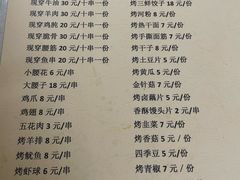 现穿牛油 30 元/十串一份
现穿羊肉 30 元/十串一份
现穿鸡肫 20 元/十串一份
现穿脆骨 30 元/十串一份
现穿腰筋 20 元/十串一份
小腰花 6 元/串
大腰子 18 元/串
鸡爪 8 元/串
鸡翅 8 元/串
五花肉 3 元/串
烤羊排 8 元/串
烤鱿鱼 8 元/串
烤虾球 6 元/串
烤三鲜饺子 18 元/份
烤河粉 8 元/份
烤热干面 7 元/份
烤手撕面筋 7 元/份
烤干子 8 元/份
烤土豆片 5 元/份
烤黄瓜 5 元/份
金针菇 7 元/份
烤卤藕片 5 元/份
香酥馒头片 2 元/串
烤韭菜 7 元/份
烤香菇 5 元/份
四季豆 5 元/份
烤青椒 7 元/份